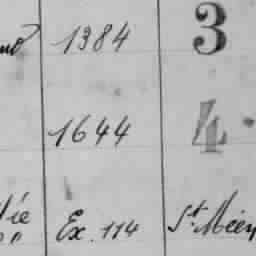 1384 3
1644 4.
Ex. 114 St Méen